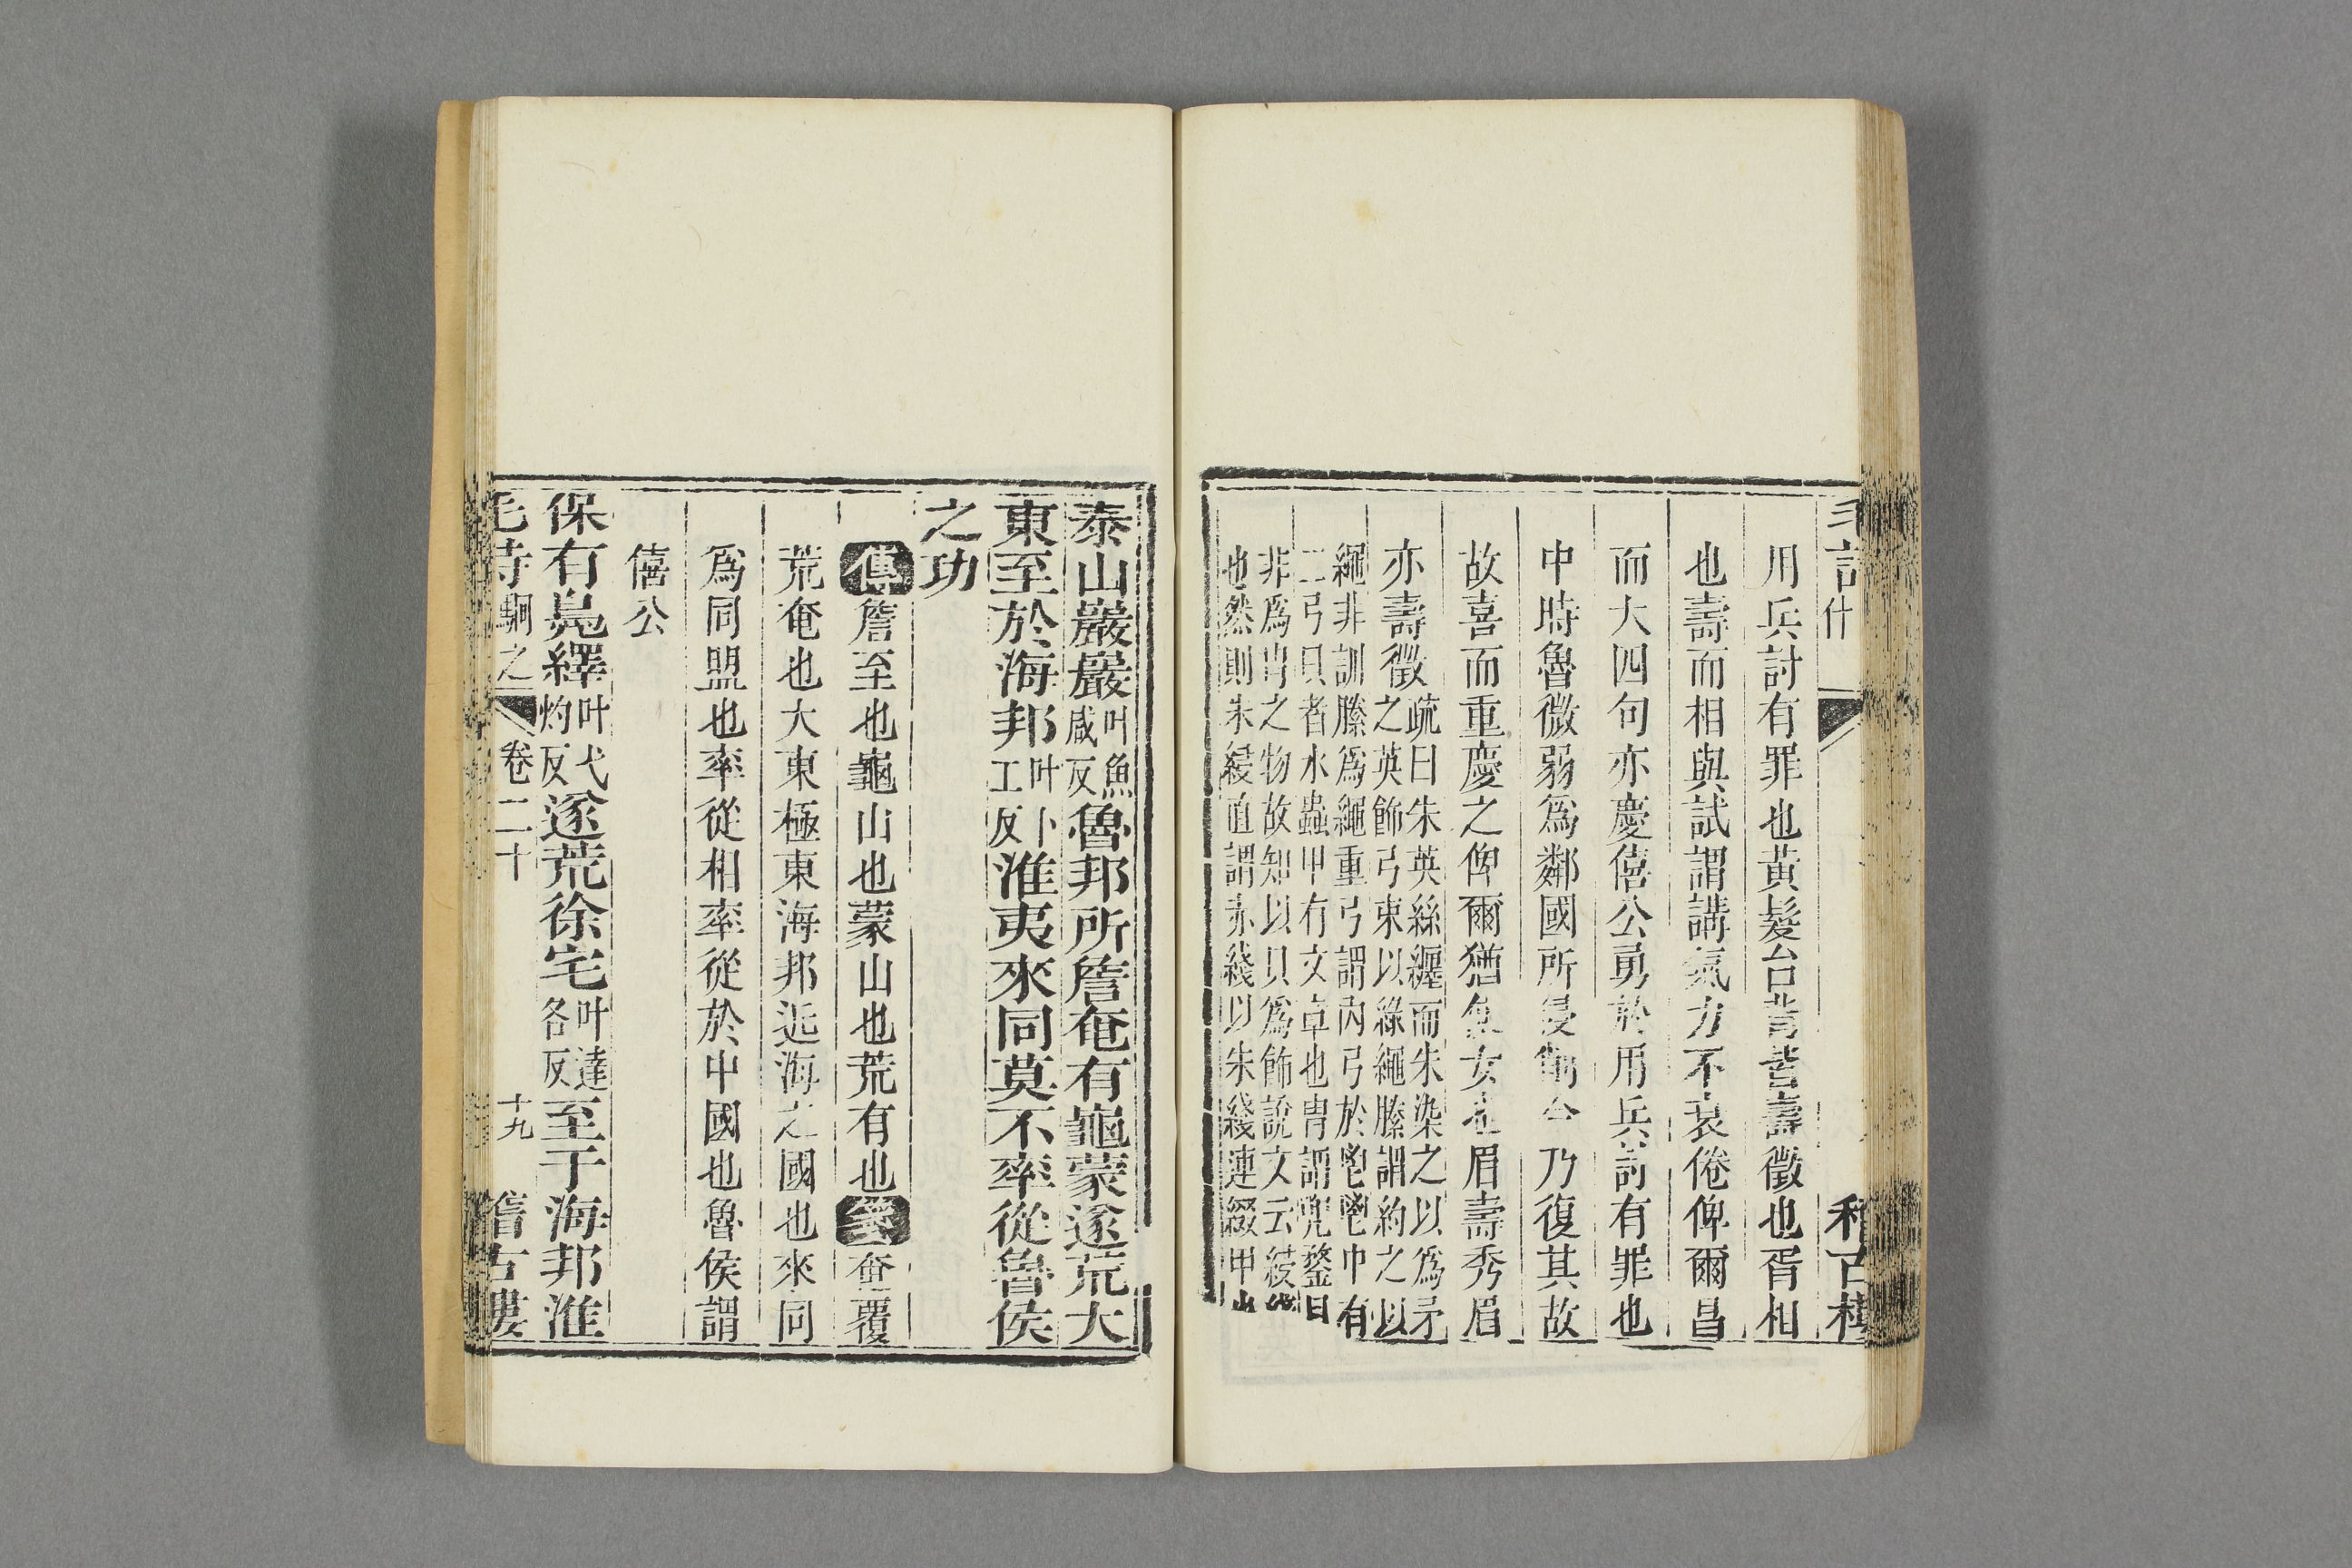 用兵討有罪也黃髮台背皆壽徵也胥相
也壽而相與試謂講氣力不衰倦俾爾昌
而大四句亦慶僖公勇於用兵討有罪也
中時魯微弱爲鄰國所侵削今乃復其故
故喜而重慶之俾爾猶使女也眉壽秀眉
亦壽徵
疏曰朱英絲纏而朱染之以爲矛
之英飾弓束以綠繩縢謂約之以
繩非訓縢爲繩重弓謂內弓於鬯鬯中有
二弓貝者水蟲甲有文章也冑謂兜鍪日
非爲冑之物故知以貝爲飾說文云綅
也然則朱綅直謂赤綫以朱綫連綴甲也
泰山巖巖
叶魚
咸反
魯邦所詹奄有龜蒙遂荒大
東至於海邦
叶卜
工反
淮夷來同莫不率從魯侯
之功
傳詹至也龜山也蒙山也荒有也箋奄覆
荒奄也大東極東海邦近海之國也來同
爲同盟也率從相率從於中國也魯侯謂
僖公
保有鳧繹
叶弋
灼反
遂荒徐宅
叶達
各反
至于海邦淮
毛詩 駉之 卷二十 十九 稽古樓